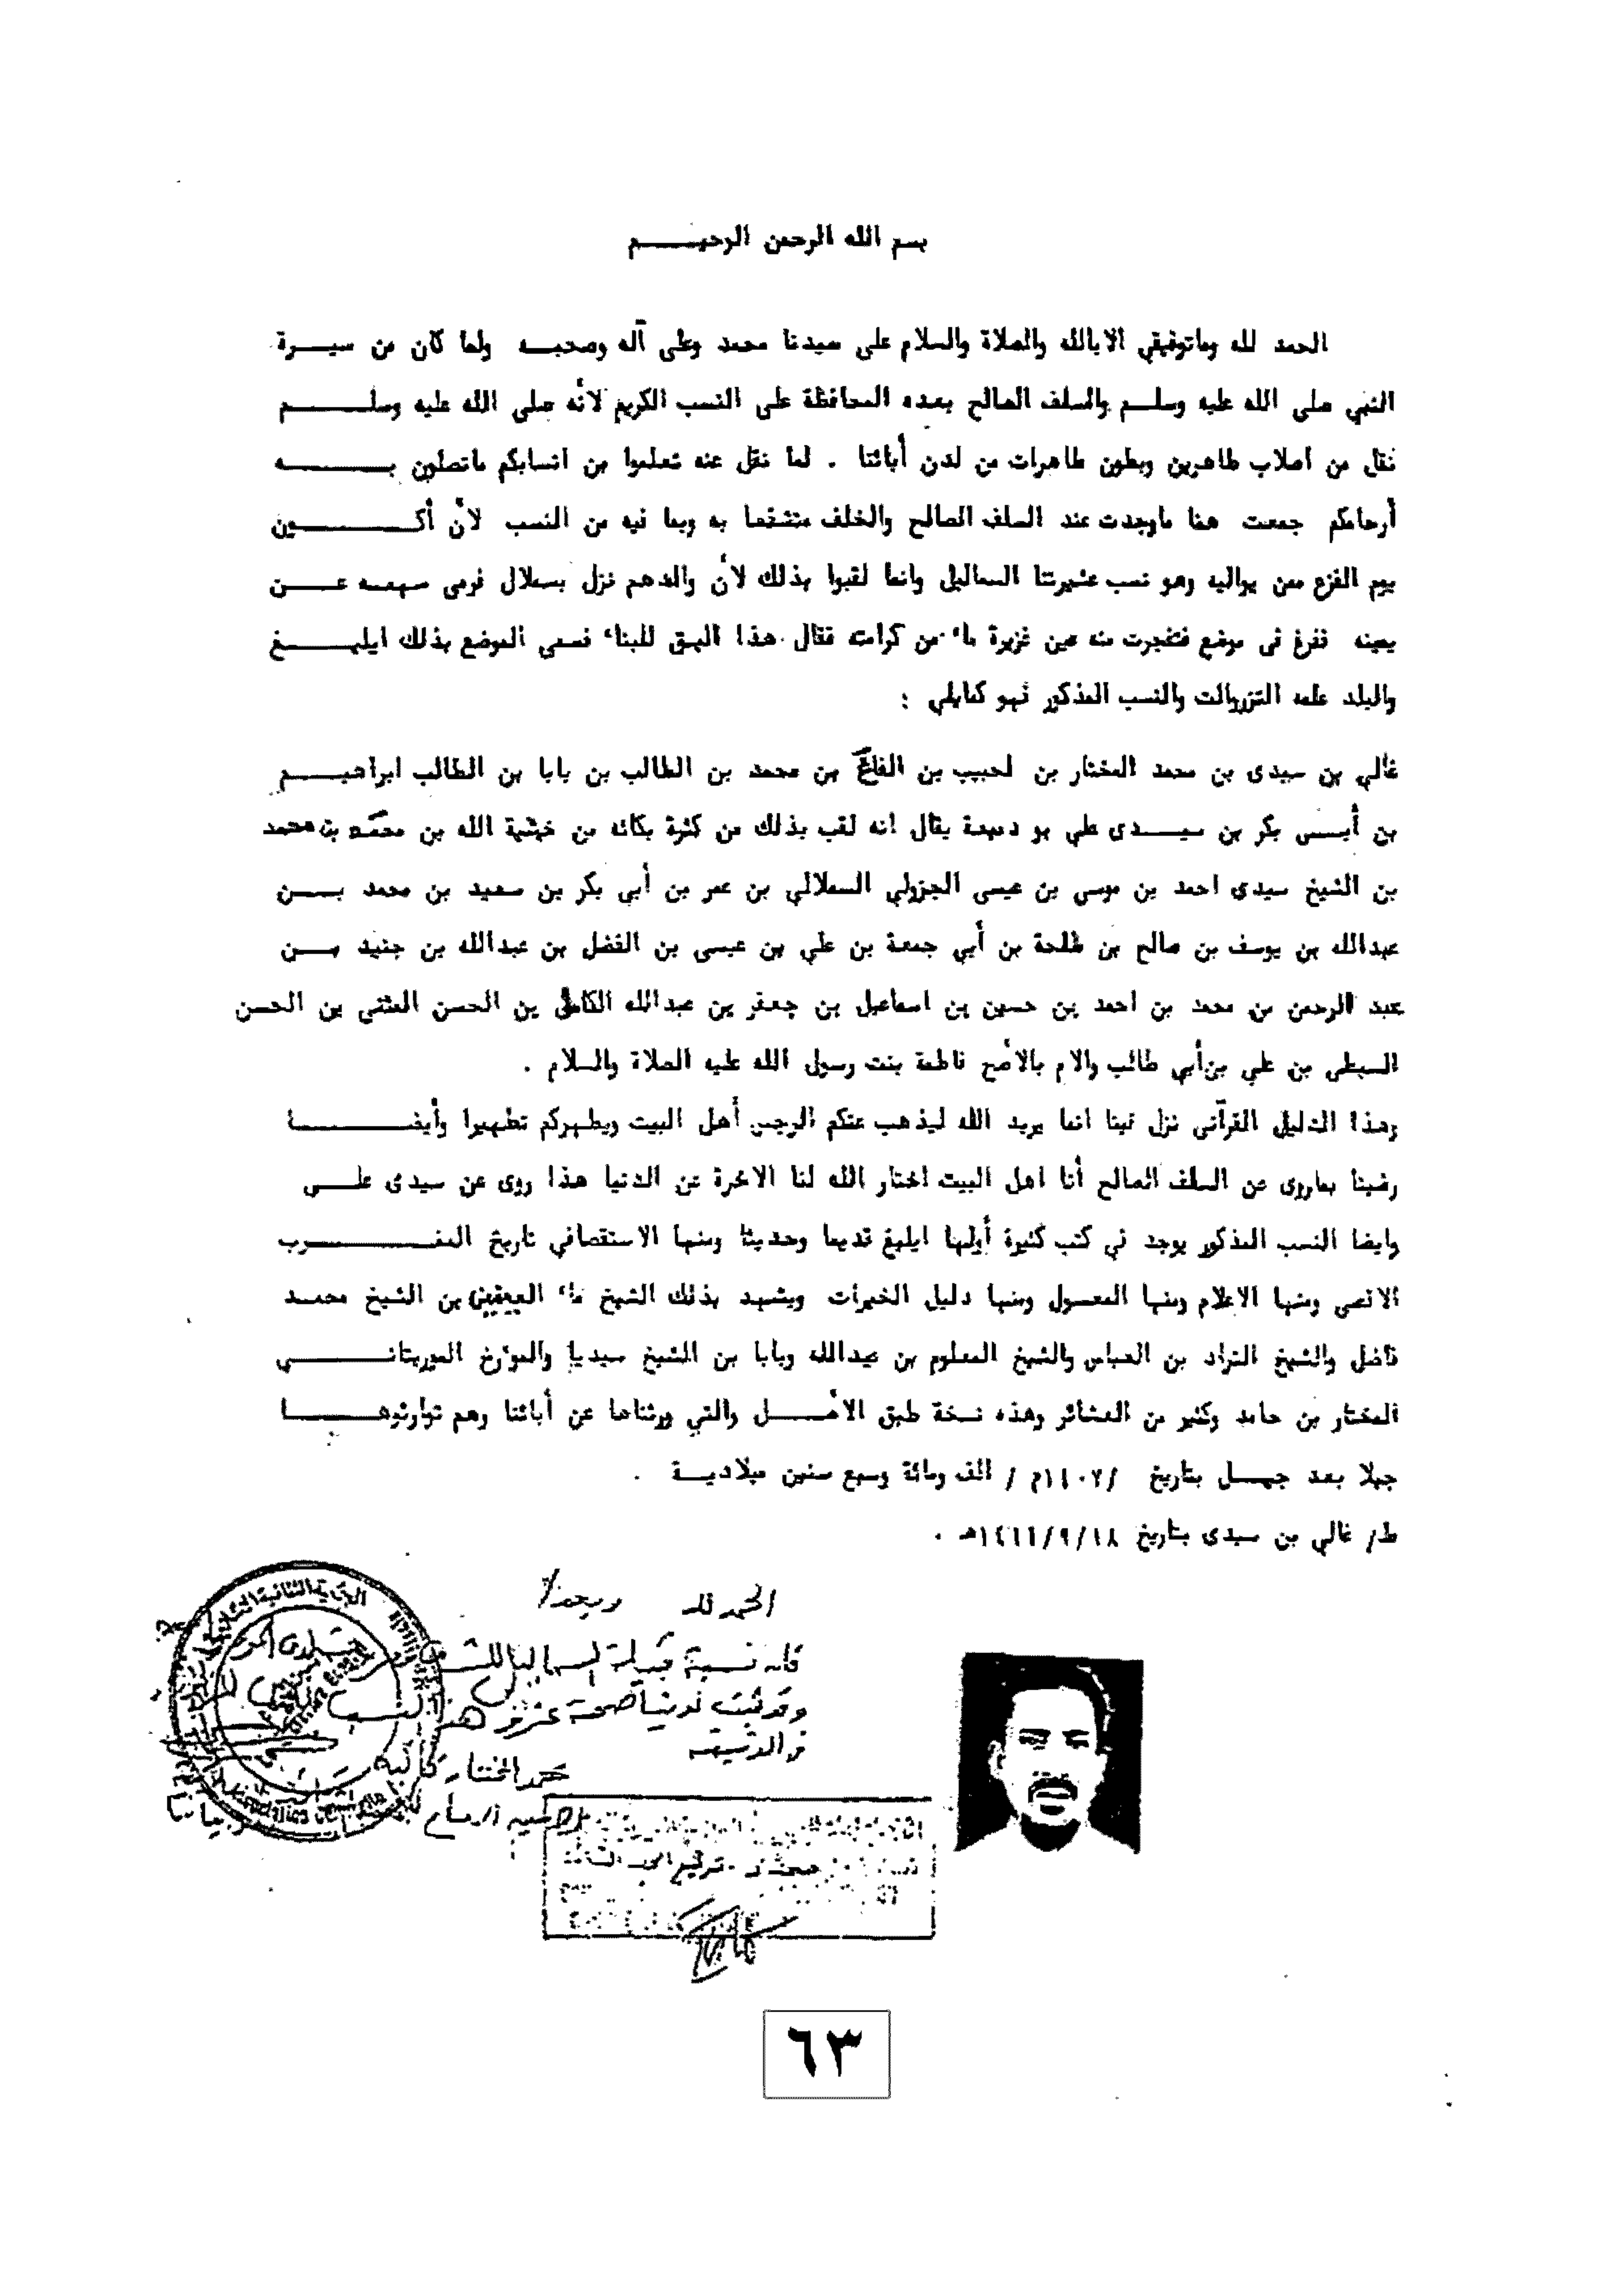 بسم الله الرحمن الرحيم
الحمد لله وماتوفيقي الابالله والصلاة والسلام على سيدنا محمد وعلى آله وصحبه ولما كان من سيرة
النبي صلى الله عليه وسلم والسلف الصالح بعده المحافظة على النسب الكريم لأنه صلى الله عليه وسلم
نقل من اصلاب طاهرين وبطون طاهرات من لدن أبائنا . لما نقل عنه تعلموا من انسابكم ماتصلون به
أرحامكم جمعت هنا ماوجدت عند السلف الصالح والخلف متشقعا به وبما فيه من النسب لأن أكون
يوم الفزع ممن يواليه وهو نسب عشيرتنا السماليل وانما لقبوا بذلك لأن والدهم نزل بسملال فرمى سهمه عن
يمينه ففرغ فى موضع فتفجرت منه عين غزيرة ماء من كرامته فقال هذا اليق للبناء فسمى الموضع بذلك ايليغ
والبلد علمه التزروالت والنسب المذكور فهو كمايلي :
غالي بن سيدى بن محمد المختار بن لحبيب بن الفاغ بن محمد بن الطالب بن بابا بن الطالب ابراهيم
بن أبى بكر بن سيدى علي بو دميعة يقال انه لقب بذلك من كثرة بكائه من خشية الله بن محمد بن محمد
بن الشيخ سيدى احمد بن موسى بن عيسى الجزولي السملالي بن عمر بن أبي بكر بن سعيد بن محمد بن
عبدالله بن يوسف بن صالح بن طلحة بن أبي جمعة بن علي بن عيسى بن الفضل بن عبدالله بن جنيد بن
عبد الرحمن بن محمد بن احمد بن حسين بن اسماعيل بن جعفر بن عبدالله الكامل بن الحسن المثنى بن الحسن
السبطى بن علي بن أبي طالب والام بالأصح فاطمة بنت رسول الله عليه الصلاة والسلام .
وهذا الدليل القرآنى نزل فينا انما يريد الله ليذهب عنكم الرجس أهل البيت ويطهركم تطهيرا وأيضا
رضينا بماروى عن السلف الصالح أنا اهل البيت اختار الله لنا الاخرة عن الدنيا هذا روى عن سيدى على
وايضا النسب المذكور يوجد في كتب كثيرة أولها ايليغ قديما وحديثا ومنها الاستقصافي تاريخ المغرب
الاقصى ومنها الاعلام ومنها المعسول ومنها دليل الخيرات ويشهد بذلك الشيخ ماء العينين بن الشيخ محمد
فاضل والشيخ التراد بن العباس والشيخ المعلوم بن عبدالله وبابا بن الشيخ سيديا والمؤرخ الموريتاني
المختار بن حامد وكثير من العشائر وهذه نسخة طبق الأصل والتي ورثناها عن أبائنا وهم توارثوها
جيلا بعد جيل بتاريخ /١٤٠٧م / الف ومائة وسبع سنين ميلادية .
ط/ غالي بن سيدى بتاريخ ١٤١١/٩/١٨هـ .
الحمد لله وبعد/
فإن نسبة قبيلة السماليل للشرف
وقد ثبت لدينا صحة هذا النسب
محمد المختار
٦٣